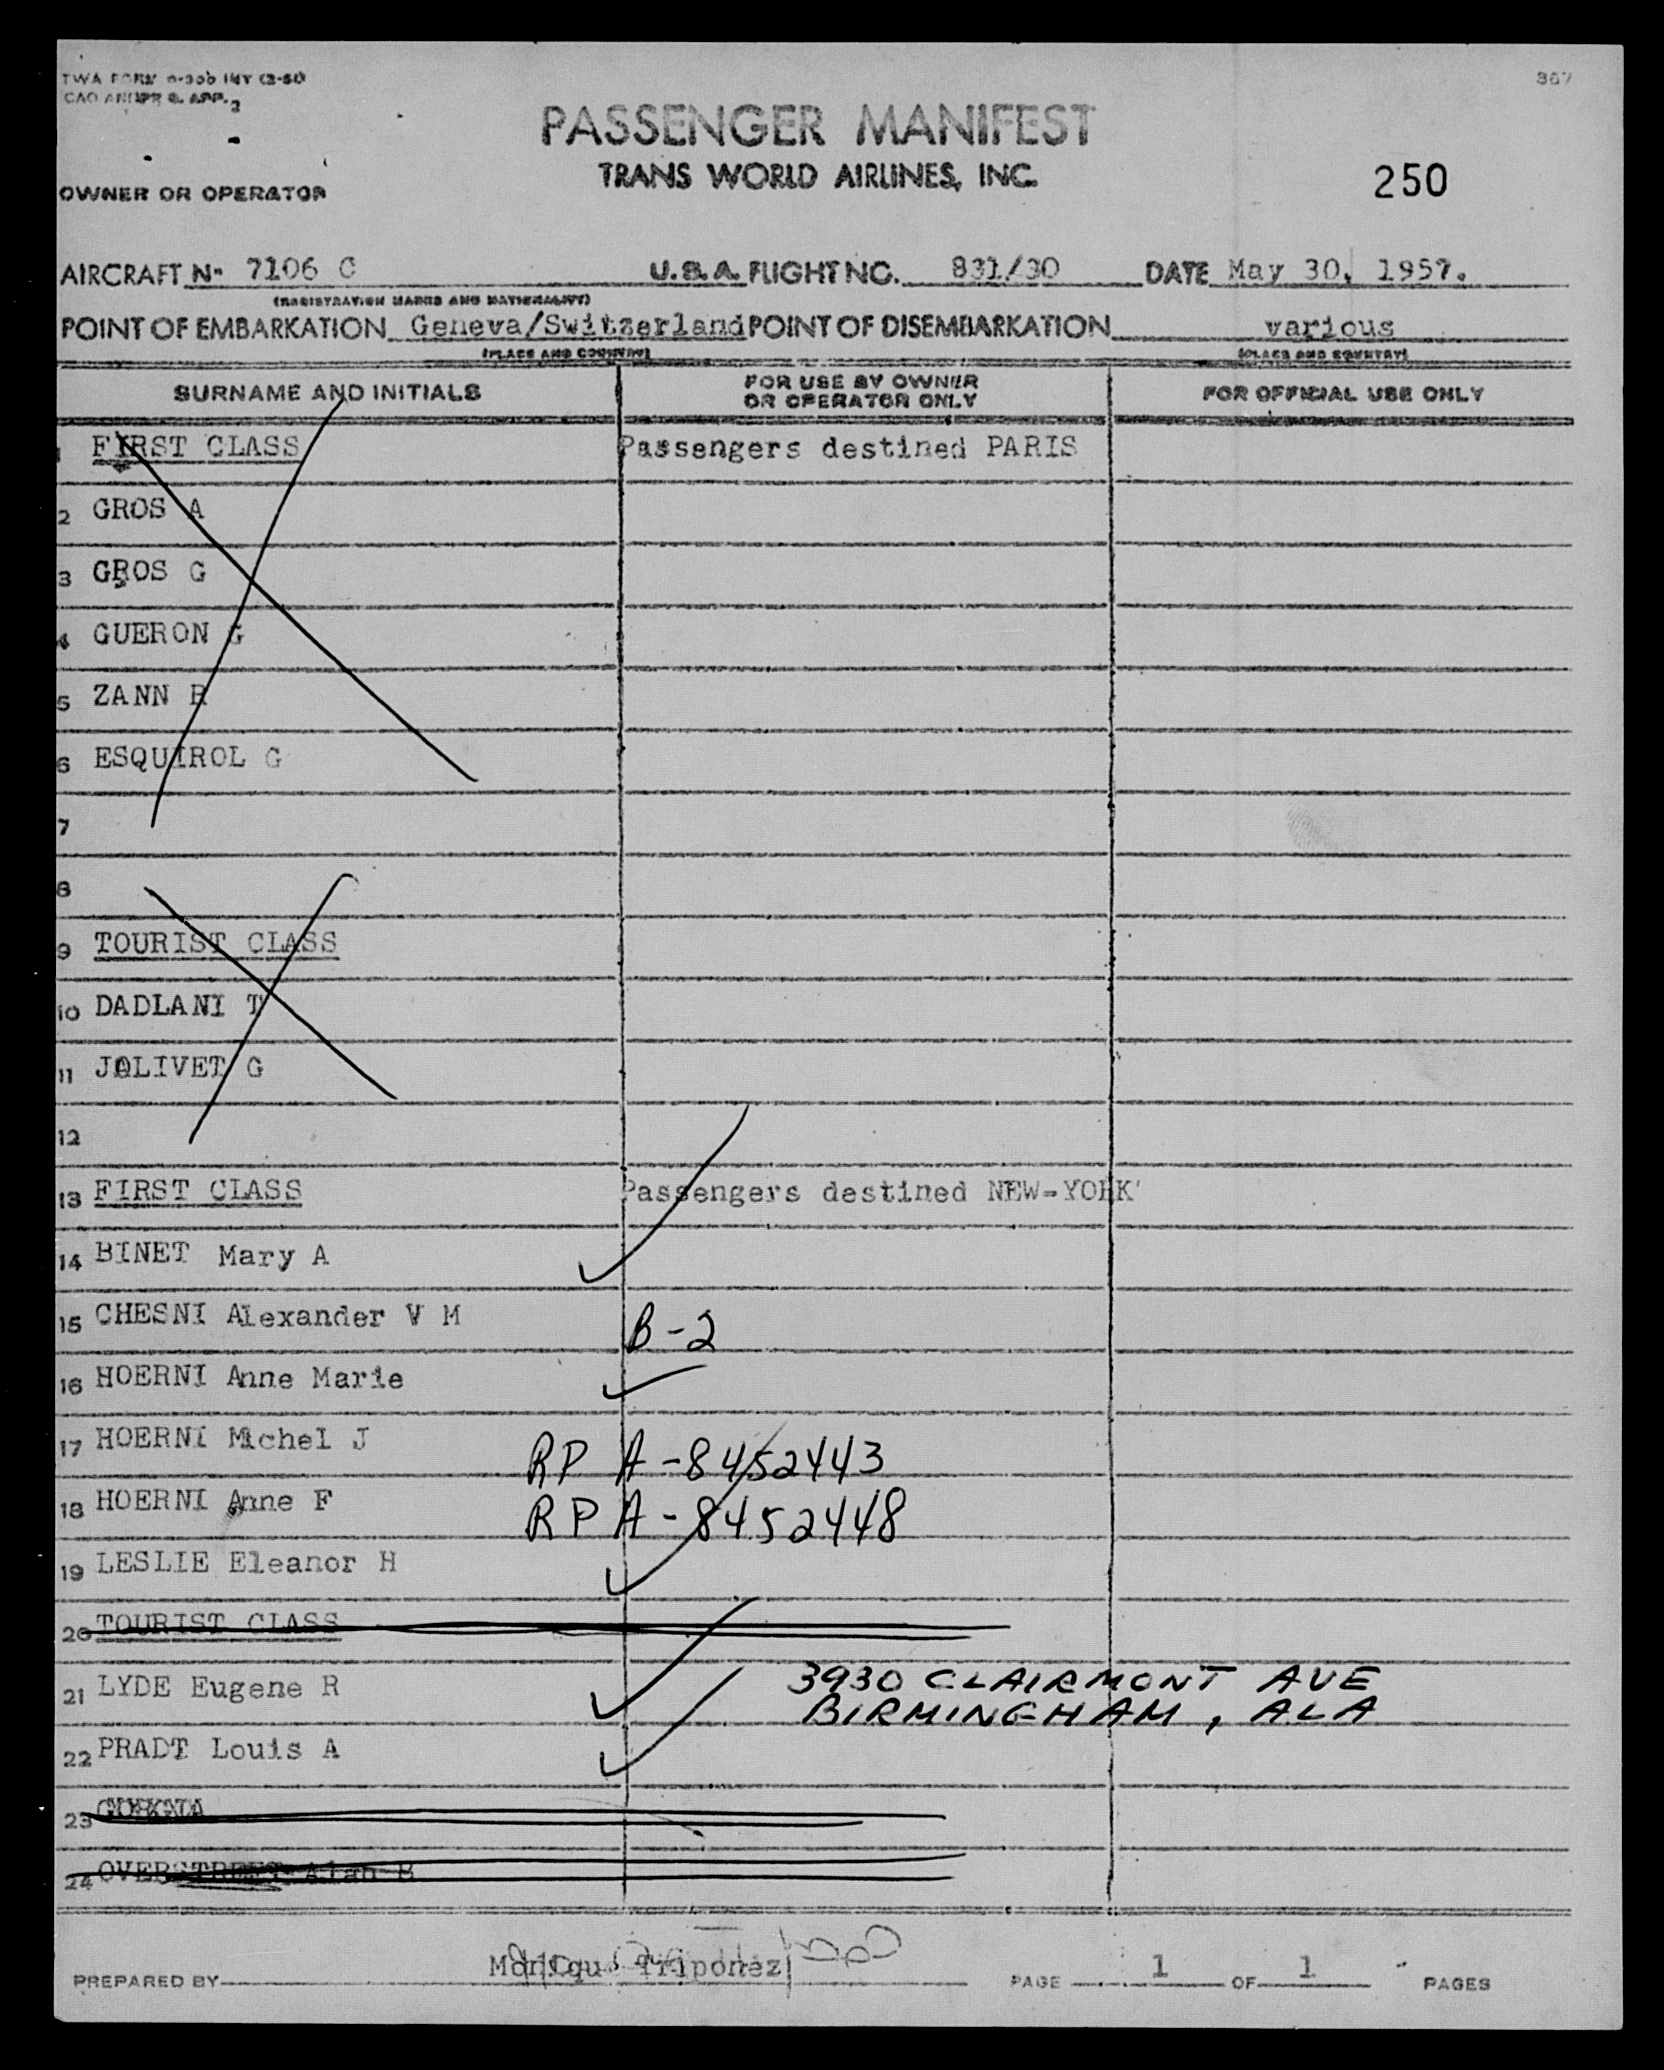 367
PASSENGER MANIFEST
TRANS WORLD AIRLINES, INC.
250
OWNER OR OPERATOR
AIRCRAFT No. 7106 C U.S.A. FLIGHT NO. 831/30 DATE May 30, 1957.
(REGISTRATION MARKS AND NATIONALITY)
POINT OF EMBARKATION Geneva/Switzerland POINT OF DISEMBARKATION various
(PLACE AND COUNTRY) (PLACE AND COUNTRY)
SURNAME AND INITIALS FOR USE BY OWNER OR OPERATOR ONLY FOR OFFICIAL USE ONLY
1 FIRST CLASS Passengers destined PARIS
2 GROS A
3 GROS G
4 GUERON G
5 ZANN R
6 ESQUIROL G
7
8
9 TOURIST CLASS
10 DADLANI T
11 JOLIVET G
12
13 FIRST CLASS Passengers destined NEW-YORK
14 BINET Mary A
15 CHESNI Alexander V M B-2
16 HOERNI Anne Marie
17 HOERNI Michel J RP A-8452443
18 HOERNI Anne F RP A-8452448
19 LESLIE Eleanor H
20 TOURIST CLASS
21 LYDE Eugene R 3930 CLAIRMONT AVE
BIRMINGHAM, ALA
22 PRADT Louis A
23
24 OVERSTREET Alan B
PREPARED BY Triponez PAGE 1 OF 1 PAGES